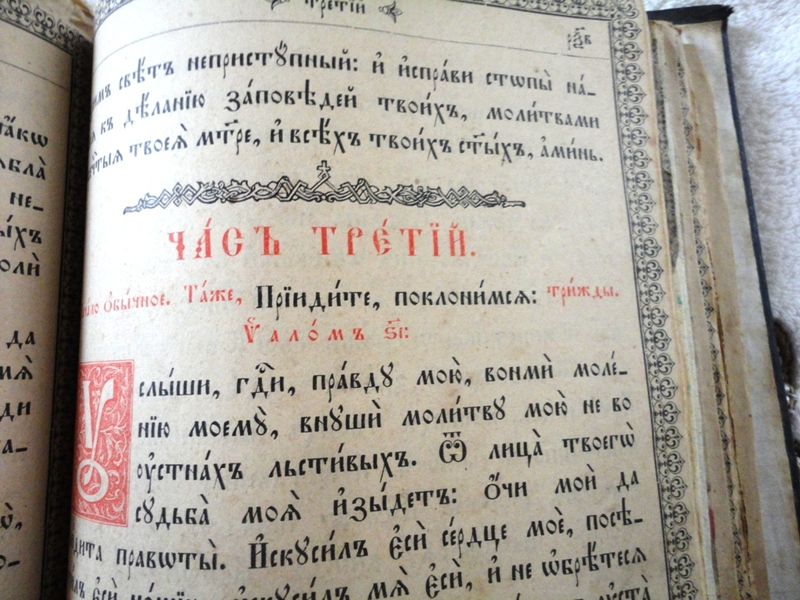 третїй
рл҃в
свѣ́тъ непристꙋ́пный: и҆ и҆спра́ви стѡпы̀ на́-
къ дѣ́ланїю за́повѣдей твои́хъ, моли́твами
твоеѧ̀ мт҃ре, и҆ всѣ́хъ твои́хъ ст҃ы́хъ, а҆ми́нь.
ЧА́СЪ ТРЕ́ТЇЙ.
ѻ҆бы́чное. Та́же, Прїиди́те, поклони́мсѧ: три́жды.
Ѱало́мъ ѕ҃і:
слы́ши, гдⷭ҇и, пра́вдꙋ мою̀, вонмѝ моле́-
нїю моемꙋ̀, внꙋшѝ моли́твꙋ мою̀ не во
ᲂу҆стна́хъ льсти́выхъ. Ѿ лица̀ твоегѡ̀
сꙋдьба̀ моѧ̀ и҆зы́детъ: ѻ҆́чи моѝ да
правѡты̑. И҆скꙋси́лъ є҆сѝ се́рдце моѐ, посѣ-
є҆сѝ но́щїю, и҆скꙋси́лъ мѧ̀ є҆сѝ, и҆ не ѡ҆брѣ́тесѧ
ᲂу҆ста̀
та́кѡ
не-
ы́хъ
да
ди